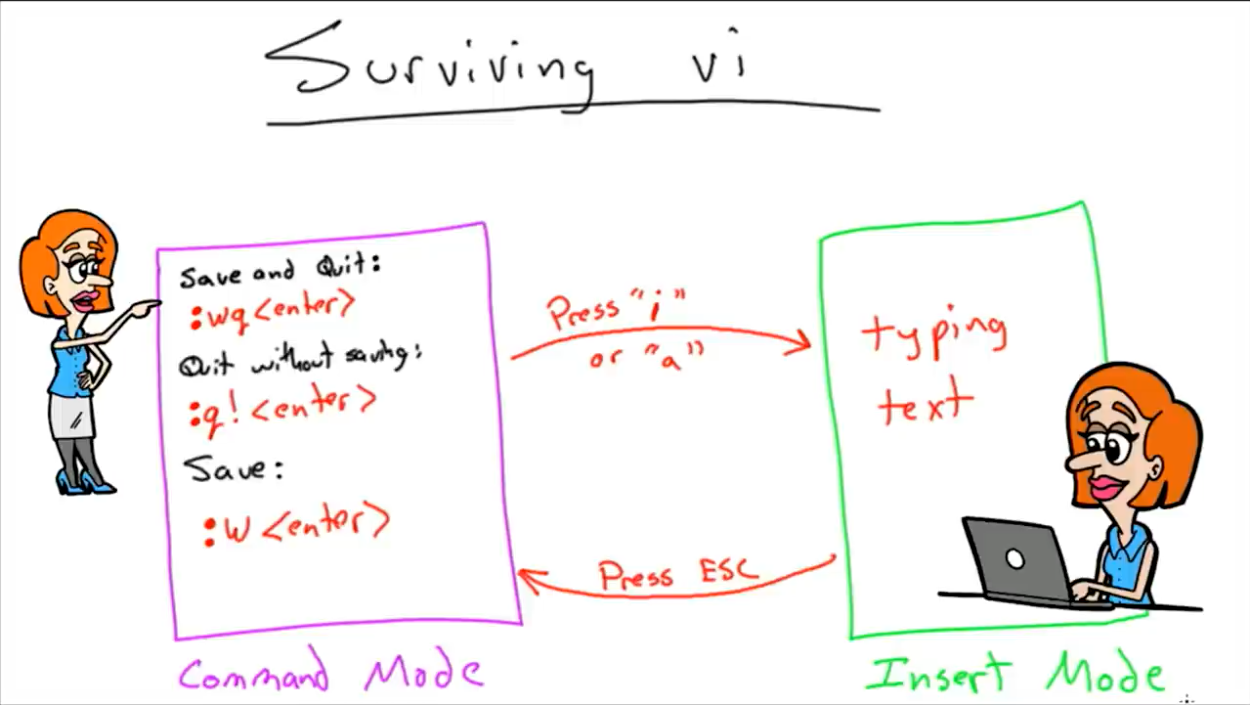 Surviving vi
Save and Quit:
:wq<enter>
Quit without saving:
:q! <enter>
Save:
:w <enter>
Command Mode
Press "i"
or "a"
Press ESC
typing
text
Insert Mode